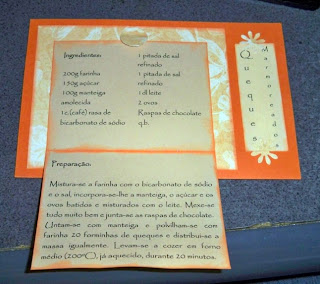 Ingredientes:
200g farinha
150g açúcar
100g manteiga
amolecida
1c (café) rasa de
bicarbonato de sódio
1 pitada de sal
refinado
1 pitada de sal
refinado
1 dl leite
2 ovos
Raspas de chocolate
q.b.
Queques
Marmoreados
Preparação:
Mistura-se a farinha com o bicarbonato de sódio
e o sal, incorpora-se-lhe a manteiga, o açúcar e os
ovos batidos e misturados com o leite. Mexe-se
tudo muito bem e junta-se as raspas de chocolate.
Untam-se com manteiga e polvilham-se com
farinha 20 forminhas de queques e distribui-se a
massa igualmente. Levam-se a cozer em forno
médio (200ºC), já aquecido, durante 20 minutos.